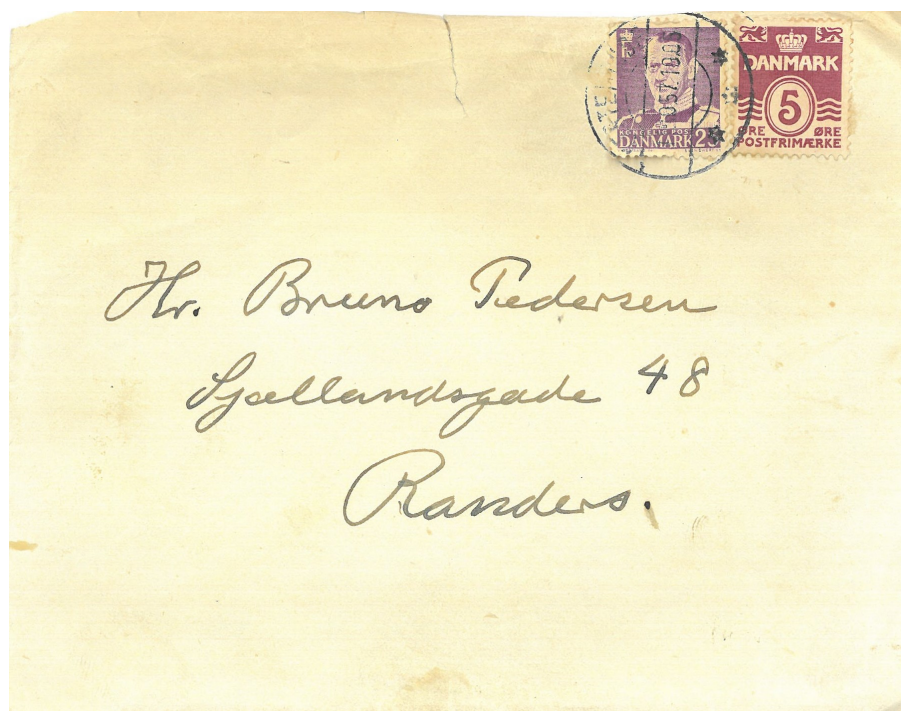 KONGELIG POST
DANMARK 25
DANMARK
5
ØRE ØRE
POSTFRIMÆRKE
Hr. Bruno Pedersen
Sjællandsgade 48
Randers.